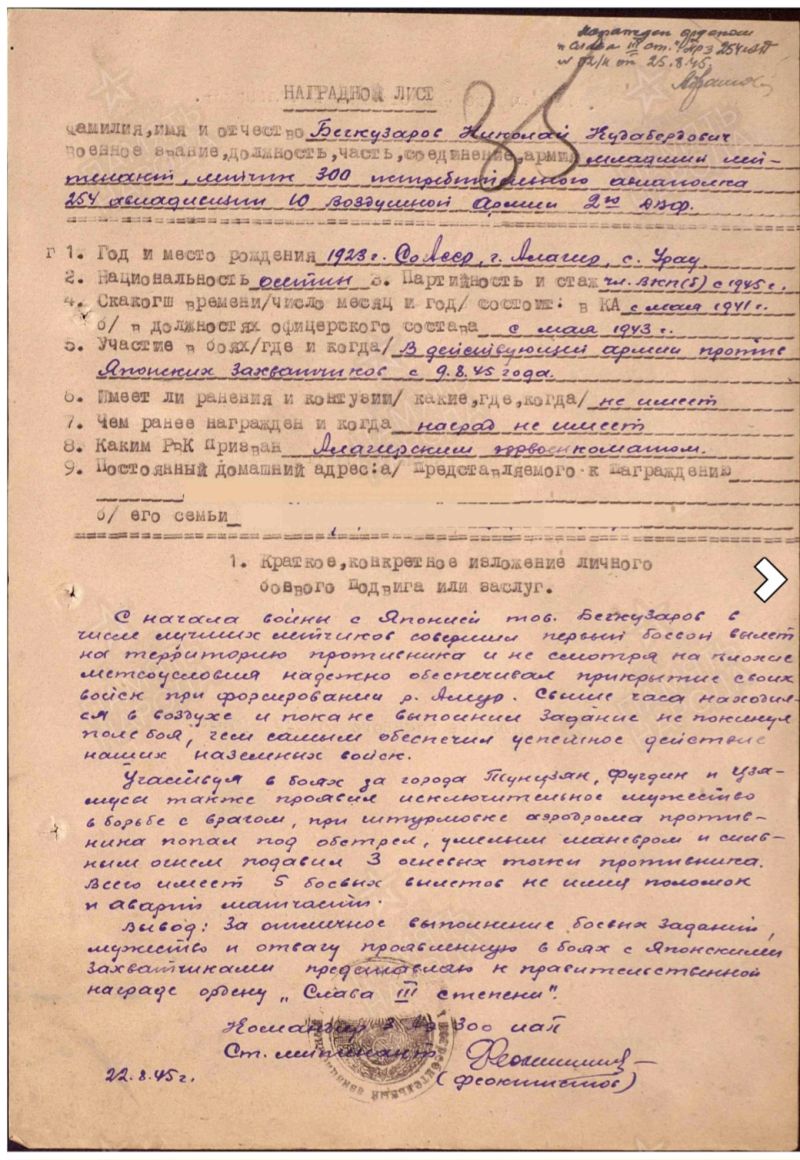 Награжден орденом
"Слава III ст." Пр 254 АД
N 02/н от 25.8.45.
НАГРАДНОЙ ЛИСТ
85
Фамилия,имя и отчество Бегкузаров Николай Кудабердович
Военное звание,должность,часть,соединение,армия младший лей-
тенант, летчик 300 истребительного авиаполка
254 авиадивизии 10 Воздушной Армии 2го ДВФ.
г 1. Год и место рождения 1923 г. СоАсср, г. Алагир, с. Урац
2. Национальность осетин 3. Партийность и стаж чл. ВКП(б) с 1945 г.
4. Скакогш времени/число месяц и год/ состоит: в КА с мая 1941 г.
б/ в должностях офицерского состава с мая 1943 г.
5. Участие в боях/где и когда/ В действующей армии против
Японских захватчиков с 9.8.45 года.
6. Имеет ли ранения и контузии/ какие,где,когда/ не имеет
7. Чем ранее награжден и когда наград не имеет
8. Каким РВК Призван Алагирским горвоенкоматом.
9. Постоянный домашний адрес:а/ Представляемого к Награждению
б/ его семьи
1. Краткое,конкретное изложение личного
боевого Подвига или заслуг.
С начала войны с Японией тов. Бегкузаров в
числе лучших летчиков совершил первый боевой вылет
на территорию противника и не смотря на плохие
метеоусловия надежно обеспечивал прикрытие своих
войск при форсировании р. Амур. Свыше часа находил-
ся в воздухе и пока не выполнил задание не покинул
поле боя, чем самым обеспечил успешное действие
наших наземных войск.
Участвуя в боях за города Тунцзян, Фугдин и Цзя-
мусы также проявил исключительное мужество
в борьбе с врагом, при штурмовке аэродрома против-
ника попал под обстрел, умелым маневром и силь-
ным огнем подавил 3 огневых точки противника.
Всего имеет 5 боевых вылетов не имея поломок
и аварий матчасти.
Вывод: За отличное выполнение боевых заданий,
мужество и отвагу проявленную в боях с Японскими
захватчиками представляю к правительственной
награде ордену „Слава III степени".
Командир 3 АЭ 300 иап
Ст. лейтенант
22.8.45г. (Феоктистов)